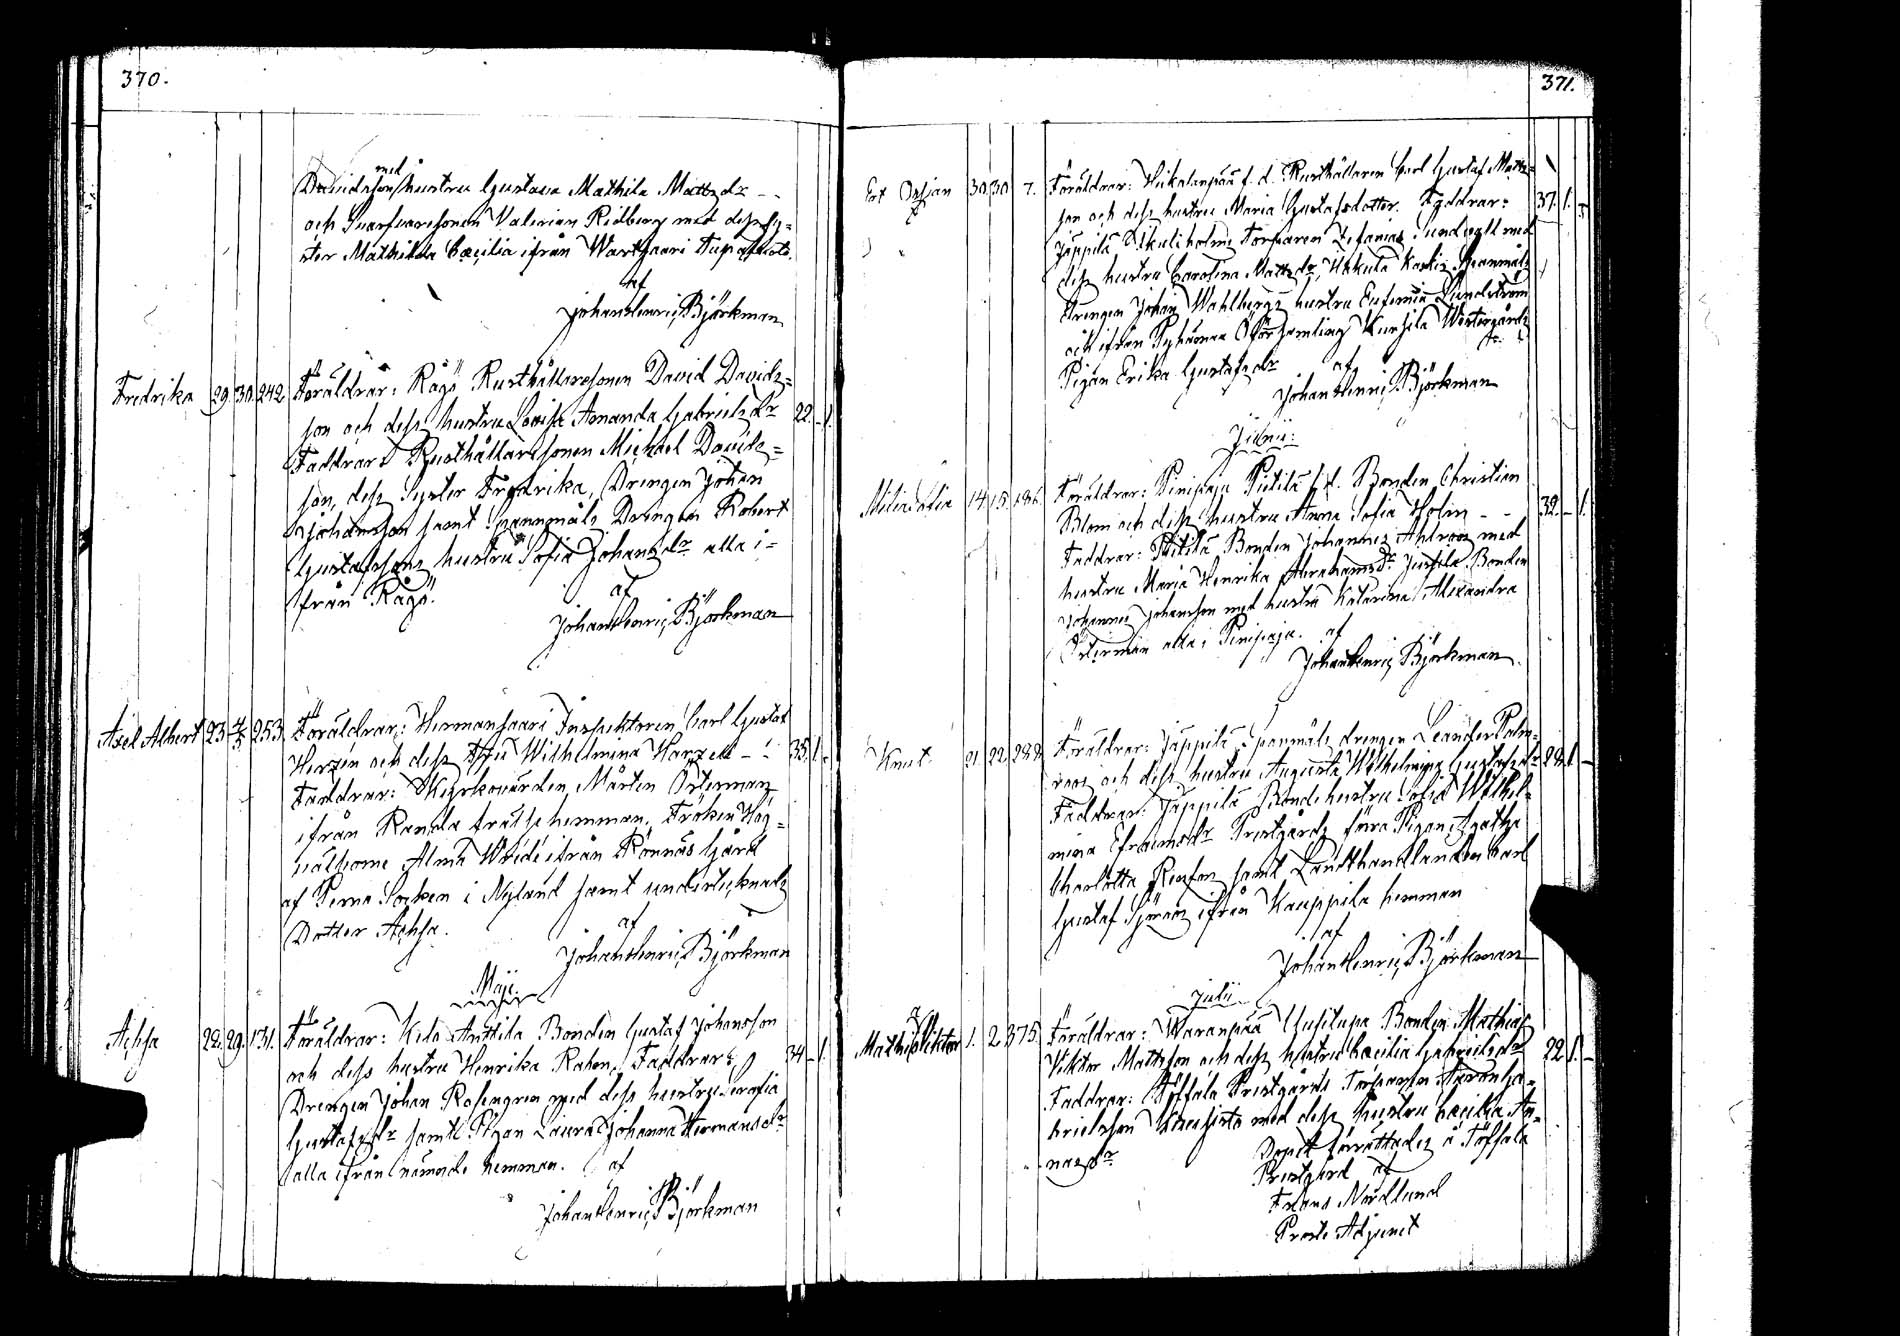 370.
med
Davidsson hustru Gustava Mathilda Mattsdr
och Svarfvaresonen Valerian Ridberg med dess Sy=
ster Mathilda Cæcilia ifrån Wartsaari
af
Johan Henric Björkman
Fredrika 29. 30. 242 Föräldrar: Rågö Rusthållaresonen David Davids=
son och dess hustru Lovisa Amanda Gabrielsdr 22. - 1.
Faddrar: Rusthållaresonen Michael Davids=
son, dess Syster Fredrika, Drengen Johan
Johansson samt Spannmåls Drengen Robert
Gustafssons hustru Sofia Johansdr alla i=
från Rågö.
af
Johan Henric Björkman
Axel Albert 23 4/5 253 Föräldrar: Hermansaari Inspektoren Carl Gustaf
Herzén och dess Fru Wilhelmina Herzén 35. 1. -
Faddrar: Kyrkovärden Mårten Österman
ifrån Randa frälsehemman, Fröken Hög=
välborne Alma Wrede ifrån Rönnäs Gård
af Perno Socken i Nyland samt undertecknads
Dotter Achsa.
af
Johan Henric Björkman
Maji
Achsa 28. 29. 131. Föräldrar: Kila Anttila Bonden Gustaf Johansson
och dess hustru Henrika Faddrar: 34 - 1.
Drengen Johan Rosengren med dess hustru Serafia
Gustafsdr samt Pigan Laura Johanna Hermansdr
alla ifrån nämnde hemman. af
Johan Henric Björkman
371.
Ossian 30. 30. 7. Föräldrar: f. d. Rusthållaren Carl Gustaf Matts=
son och dess hustru Maria Gustafsdotter. Faddrar: 37. 1.
Jäppilä Torparen Zefanias med
dess hustru Carolina Mattsdr, Hakula
Drengen Johan Wahlbergs hustru Eufemia Lundström
och ifrån Pyhämaa Ö församling Westergårds
Pigan Erika Gustafsdr af
Johan Henric Björkman
Junii:
Sofia 14. 15. 186. Föräldrar: Pinipaju Pietilä f. d. Bonden Christian
Blom och dess hustru Anna Sofia Holm - - 39. - 1.
Faddrar: Pietilä Bonden Johannes Ahlroos med
hustru Maria Henrika Abrahamsdr Jussila Bonden
Johannes Johansson med hustru Katarina Alexandra
Österman alla i Pinipaju. af
Johan Henric Björkman.
Knut 21. 22. 288. Föräldrar: Jäppilä Spanmåls drengen Leander Palm=
roos och dess hustru Augusta Wilhelmina Gustafsdr 28. 1. -
Faddrar: Jäppilä Bondehustru Sofia Wilhel=
mina Efraimsdr Prestgårds förra Pigan Agatha
Charlotta samt Landthandlanden Carl
Gustaf Sjöroos ifrån Kauppila hemman
af
Johan Henric Björkman
Julii
Mathias Viktor 1. 2. 375. Föräldrar: Waranpää Uusitupa Bonden Mathias
Viktor Mattsson och dess hustru Cæcilia Gabrielsdr 22. 1. -
Faddrar: Töfsala Prestgårds Torparen Ga=
brielsson med dess hustru Cæcilia An=
naedr Dopet förrättades å Töfsala
Prestgård af
Frans Nordlund
Proste Adjunct